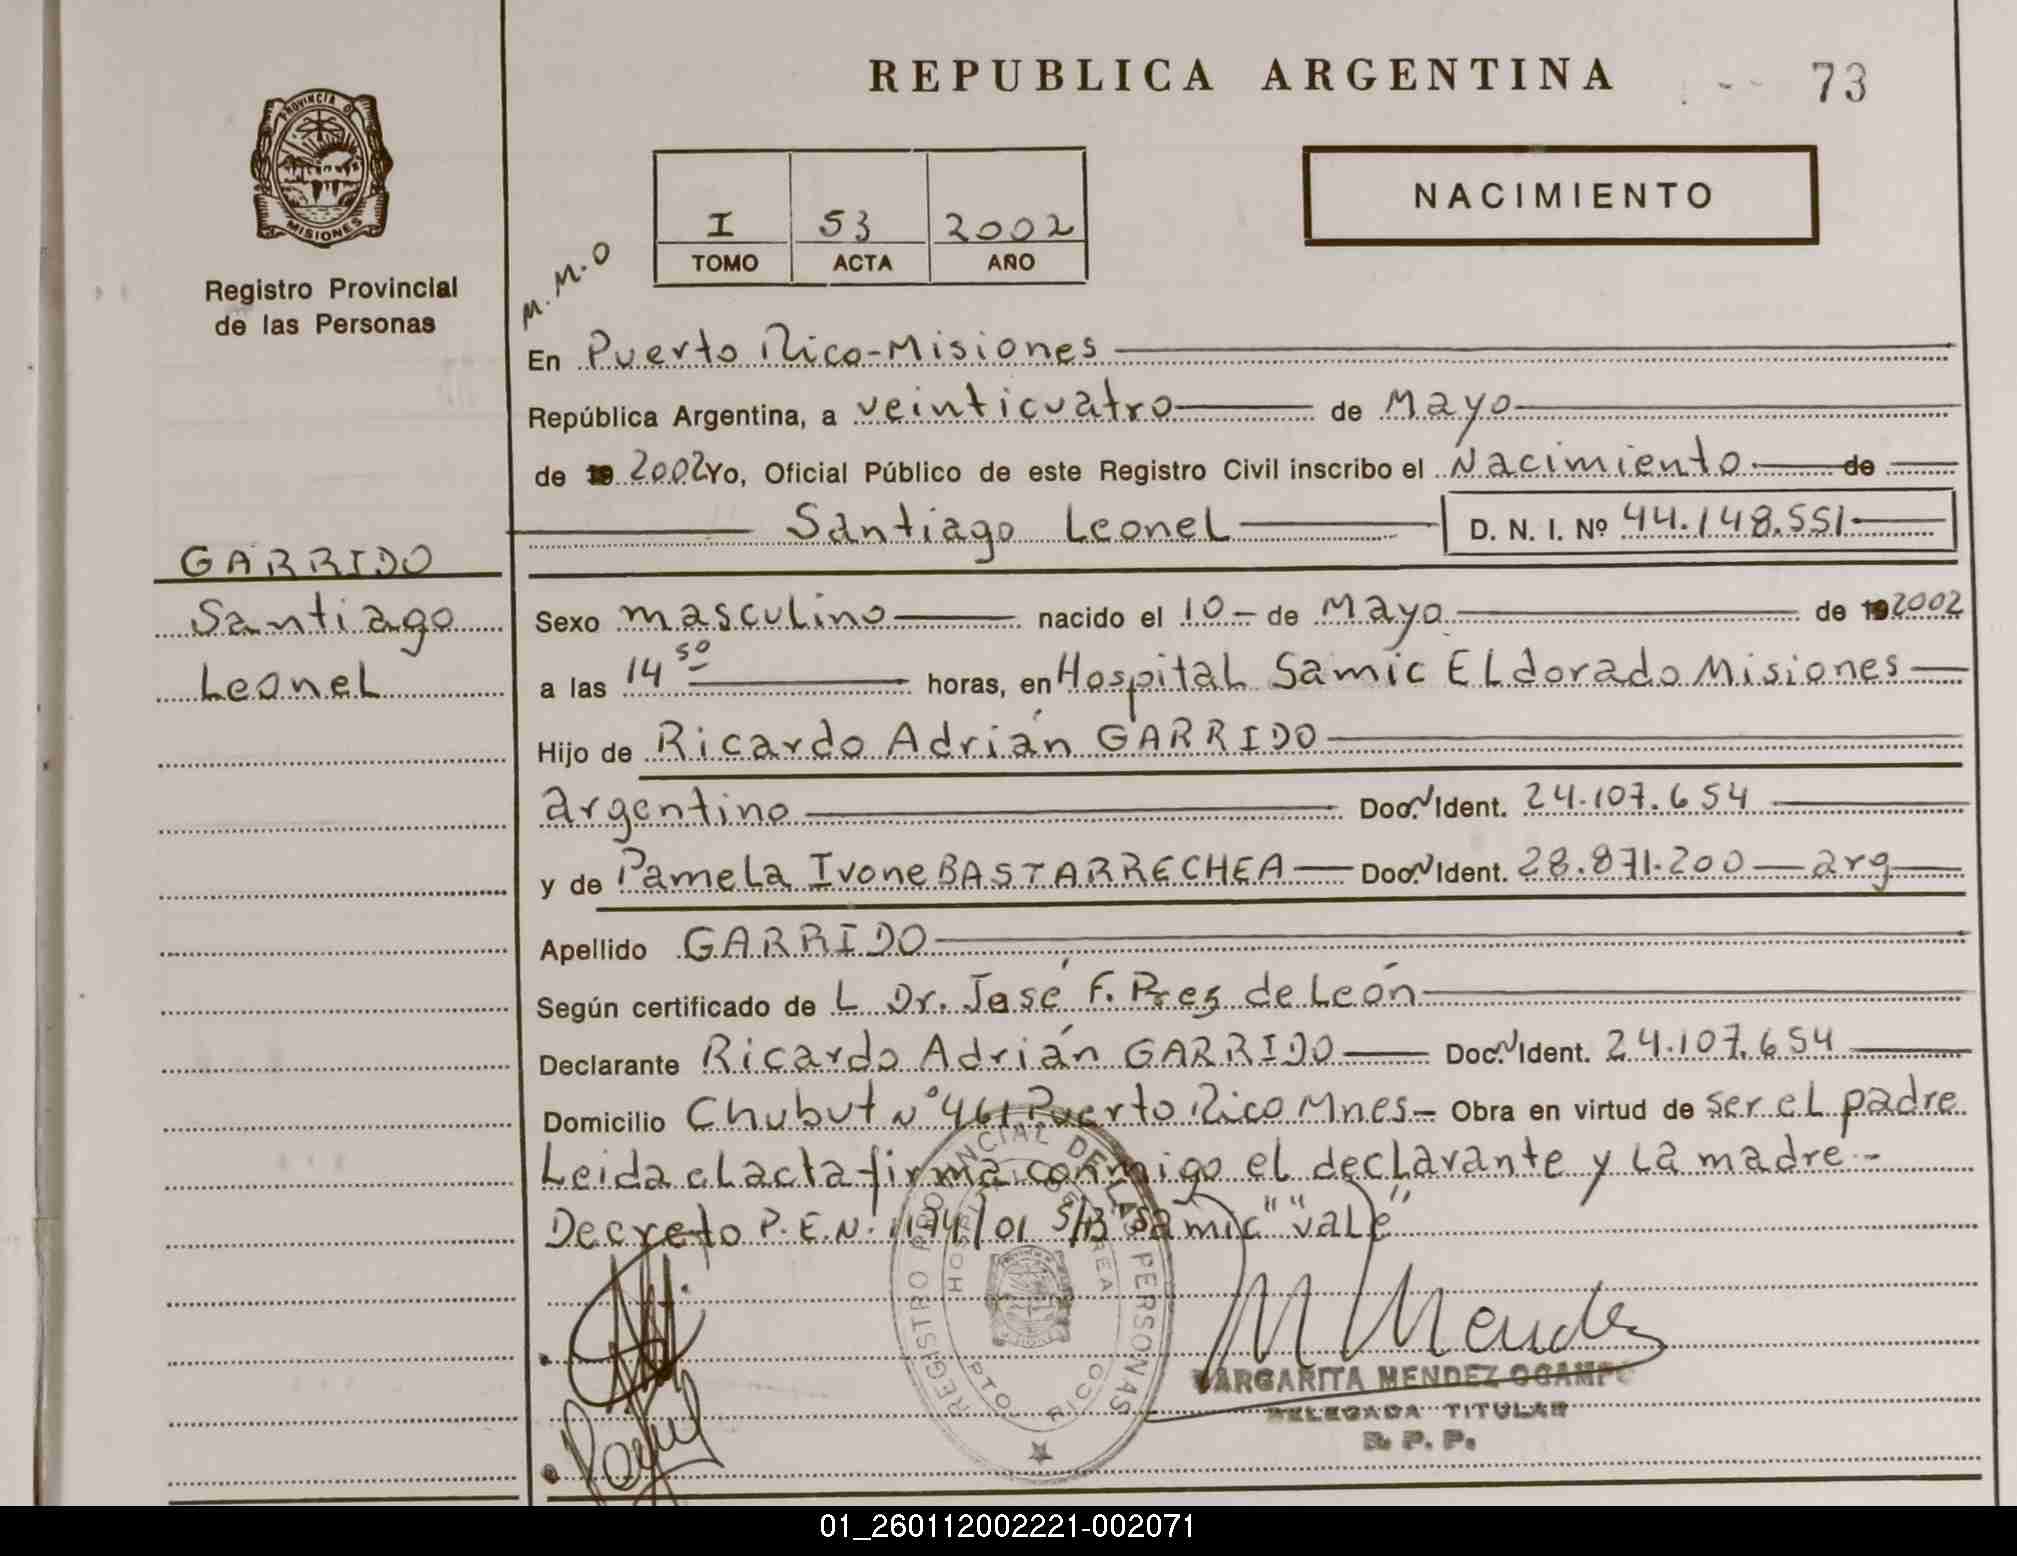 REPUBLICA ARGENTINA
73
PROVINCIA DE
MISIONES
Registro Provincial
de las Personas
NACIMIENTO
I 53 2002
TOMO ACTA AÑO
M.M.O
En Puerto Rico-Misiones
República Argentina, a veinticuatro de Mayo
de 19 2002 Yo, Oficial Público de este Registro Civil inscribo el Nacimiento de
Santiago Leonel D. N. I. Nº 44.148.551
GARRIDO
Santiago
Leonel
Sexo masculino nacido el 10 - de Mayo de 19 2002
a las 14 50 horas, en Hospital Samic ELdorado Misiones
Hijo de Ricardo Adrián GARRIDO
argentino Doc. N Ident. 24.107.654
y de Pamela Ivone BASTARRECHEA Doc. N Ident. 28.871.200 - arg
Apellido GARRIDO
Según certificado de L Dr. José F. Prez de León
Declarante Ricardo Adrián GARRIDO Doc. N Ident. 24.107.654
Domicilio Chubut Nº 461 Puerto Rico Mnes. Obra en virtud de ser el padre
Leida el acta firma conmigo el declarante y la madre.-
Decreto P.E.N. 1174/01 S/B "Samic" "vale"
REGISTRO PROVINCIAL DE LAS PERSONAS
HOSPITAL DE AREA
PTO RICO
M Mendez
MARGARITA MENDEZ OCAMPO
DELEGADA TITULAR
R. P. P.
01_260112002221-002071